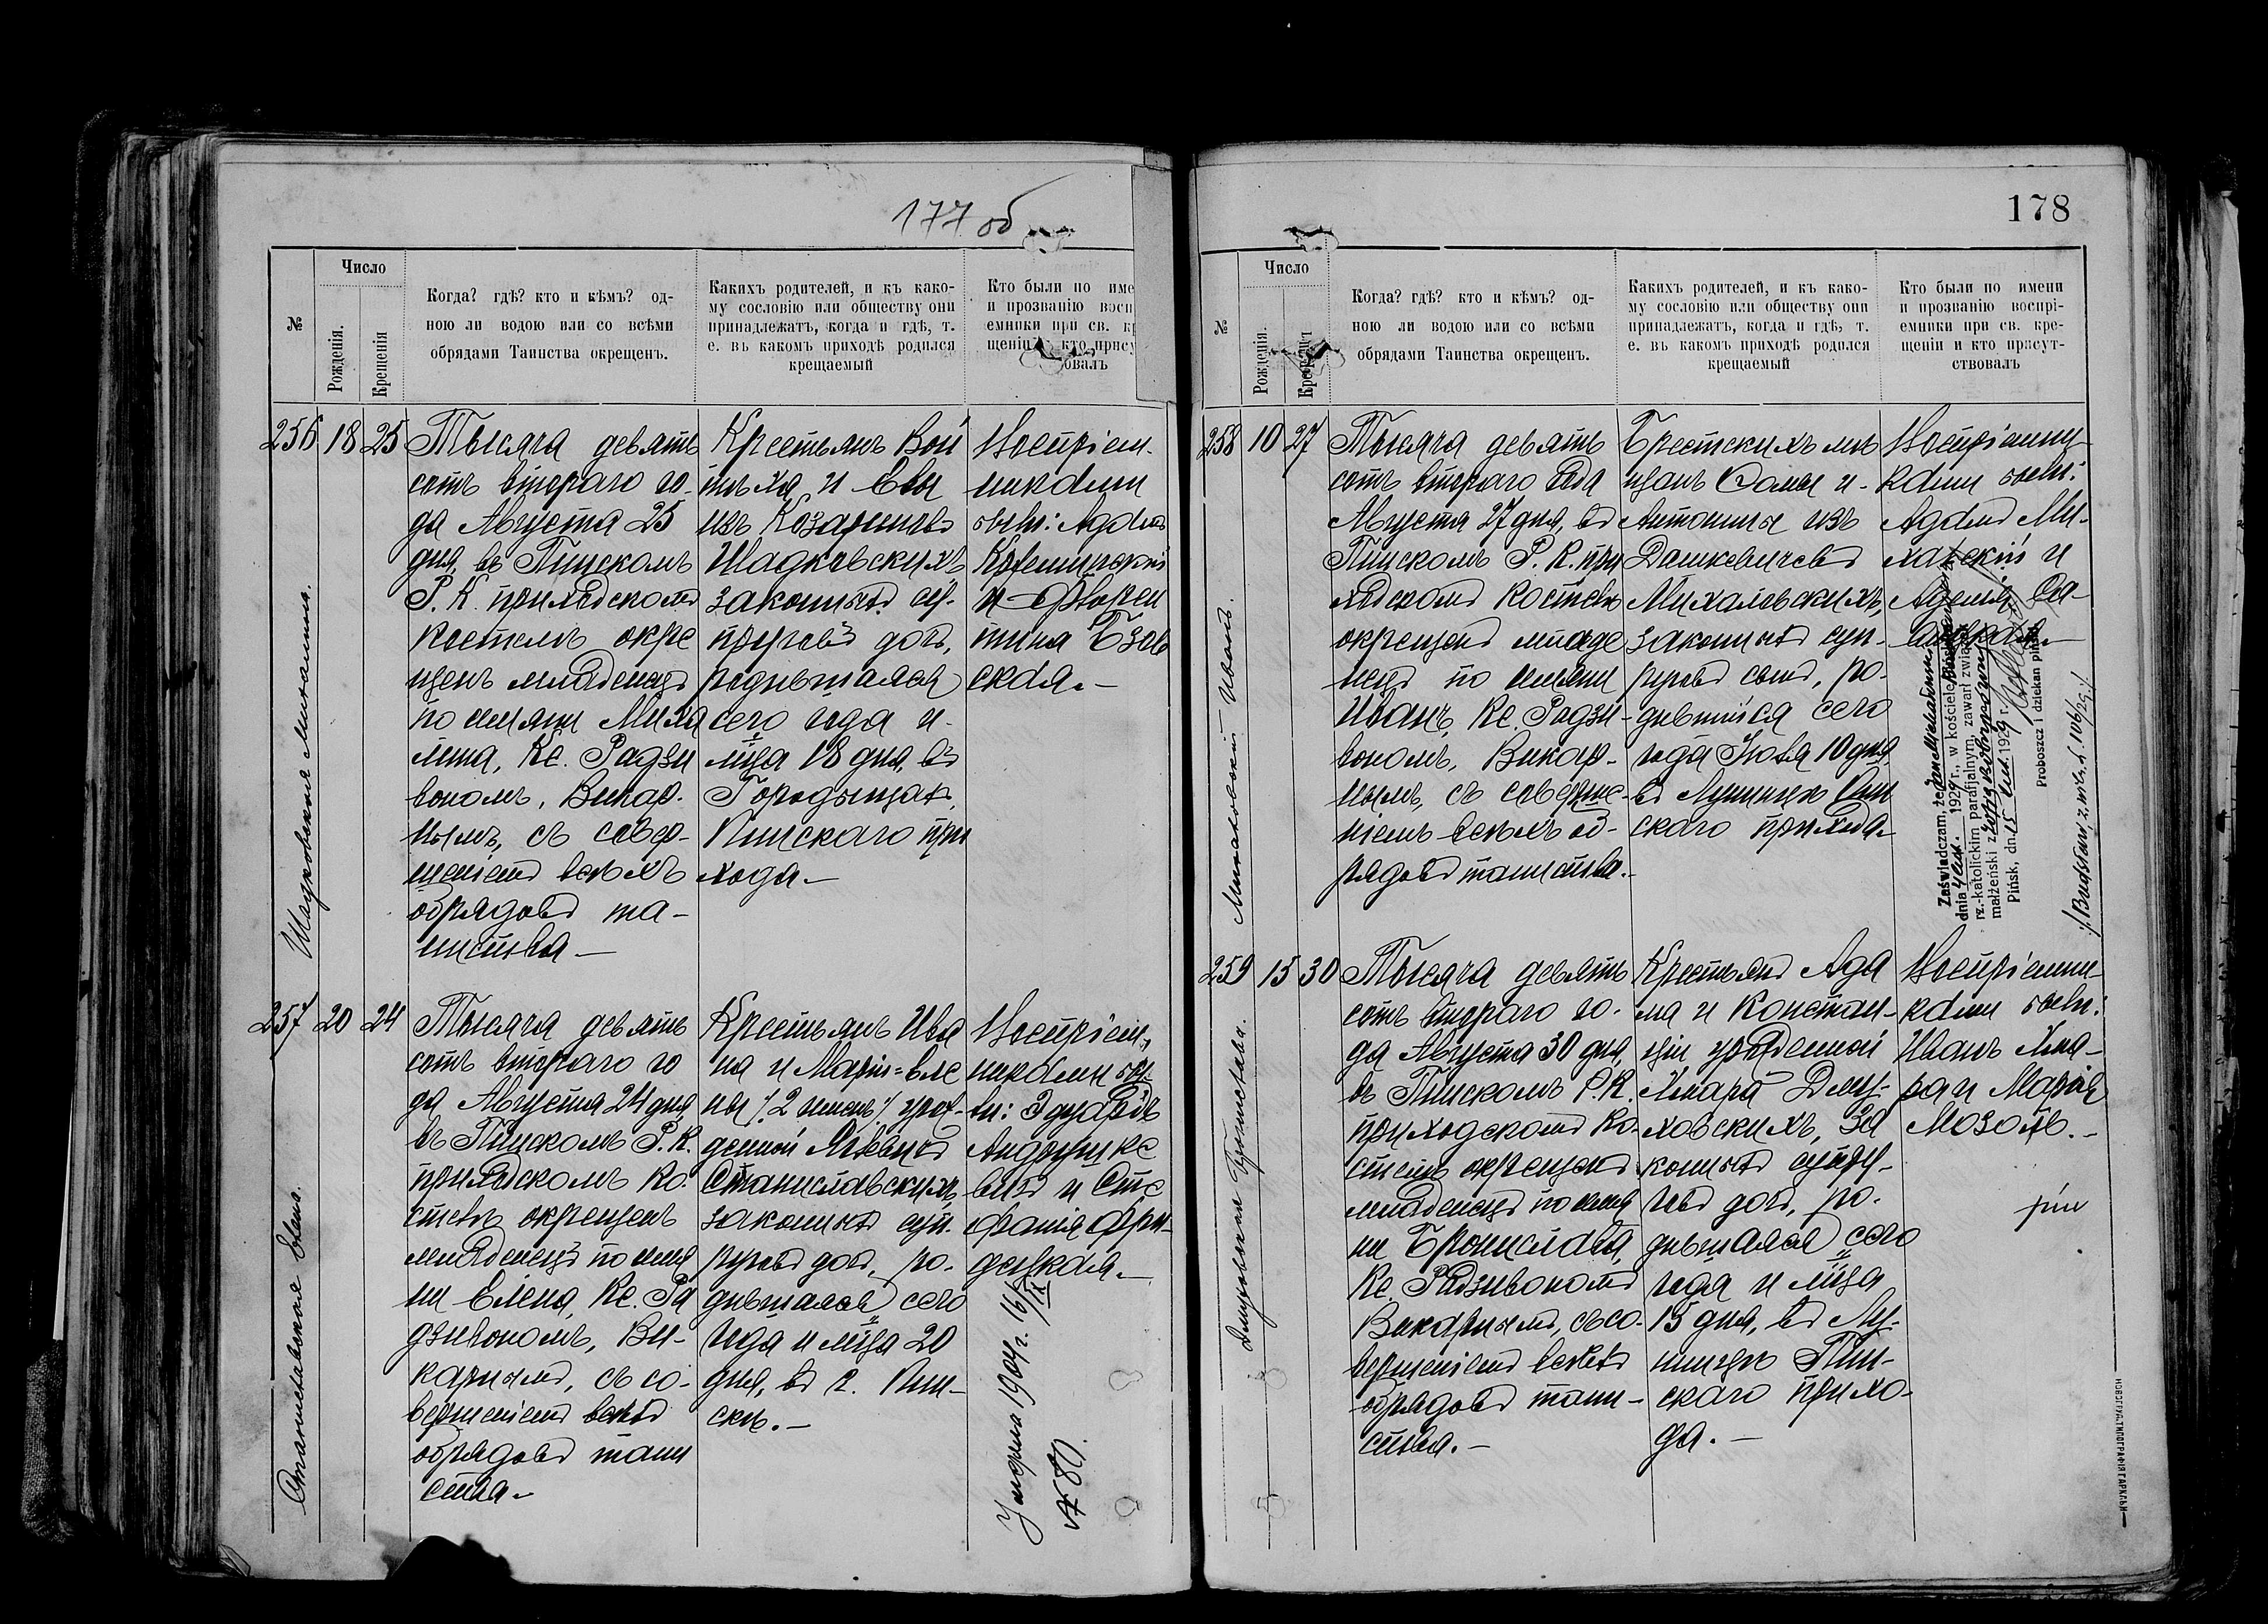 177 об
№
Число
Рожденія.
Крещенія
Когда? гдѣ? кто и кѣмъ? од-
ною ли водою или со всѣми
обрядами Таинства окрещенъ.
Каких̄ъ родителей, и къ како-
му сословію или обществу они
принадлежатъ, когда и гдѣ, т.
е. въ какомъ приходѣ родился
крещаемый
Кто были по име
и прозванію восп
емники при св. кр
щеніи кто прису
овалъ
256 18 25
Шадковская Михалина.
Тысяча девять
сотъ втораго го-
да Августа 25
дня, въ Пинскомъ
Р. К. приходскомъ
костелѣ окре
щенъ младенецъ
по имяни Миха
лина, Кс. Радзи
вономъ, Викар-
нымъ, съ совер-
шеніемъ всѣхъ
обрядовъ та-
инства
Крестьянъ Вой
тѣха и Евы
изъ
Шадковскихъ
законныхъ су-
пруговъ дочь,
родившаяся
сего года и
м̃ца 18 дня, въ
Городищахъ,
Пинскаго при
хода.
Воспріем-
никами
были: Адамъ
и Флорен
тина Бзов
ская.
257 20 24
Станиславская Елена.
Тысяча девять
сотъ втораго го
да Августа 24 дня,
въ Пинскомъ Р. К.
приходскомъ ко-
стелѣ окрещенъ
младенецъ по имя
ни Елена, Кс. Ра
дзивономъ, Ви-
карнымъ, съ со-
вершеніемъ всѣхъ
обрядовъ таин
ства.
Крестьянъ Ива
на и Маріи-Еле
ны /2 именъ/ урож-
денной
Станиславскихъ,
законныхъ суп-
руговъ дочь, ро-
дившаяся сего
года и м̃ца 20
дня, въ г. Пин-
скѣ.
Воспріем-
никами бы-
ли: Эдуардъ
Андрушке
вичъ и Сте
фанія
1904 г. 16/IX
№ 80.
178
№
Число
Рожденія.
Когда? гдѣ? кто и кѣмъ? од-
ною ли водою или со всѣми
обрядами Таинства окрещенъ.
Какихъ родителей, и къ како-
му сословію или обществу они
принадлежатъ, когда и гдѣ, т.
е. въ какомъ приходѣ родился
крещаемый
Кто были по имени
и прозванію воспрі-
емники при св. кре-
щеніи и кто присут-
ствовалъ
258 10 27
Михаловскій Иванъ.
Тысяча девять
сотъ втораго года
Августа 27 дня, въ
Пинскомъ Р. К. при
ходскомъ костелѣ
окрещенъ младе
нецъ по имяни
Иванъ, Кс. Радзи-
вономъ, Викар-
нымъ, съ соверше-
ніемъ всѣхъ об-
рядовъ таинства.
Брестскихъ мѣ
щанъ Фомы и
Антонины изъ
Дашкевичевъ
Михаловскихъ,
законныхъ суп-
руговъ сынъ, ро-
дившійся сего
года Іюля 10 дня
въ Лунинцѣ Пин
скаго прихода.
Воспріемни-
ками были:
Адамъ Ми-
халскій и
Zaświadczam, że Jan Michałowski
dnia 4 1929 r., w kościele
rz.-katolickim parafjalnym, zawarł związek
małżeński z
Pińsk, dn. 15 1929 r.
Proboszcz i dziekan piński
259 15 30
Бронислава.
Тысяча девять
сотъ втораго го-
да Августа 30 дня,
въ Пинскомъ Р. К.
приходскомъ ко-
стелѣ окрещенъ
младенецъ по имя
ни Бронислава,
Кс. Радзивономъ
Викарнымъ, съ со-
вершеніемъ всѣхъ
обрядовъ таин-
ства.
Крестьянъ Ада
ма и Констан-
ціи урожденной
Хмара Дму-
ховскихъ, за
конныхъ супру-
говъ дочь, ро-
дившаяся сего
года и м̃ца
15 дня, въ Лу-
нинцѣ Пин-
скаго прихо-
да.
Воспріемни-
ками были:
Иванъ Хма-
ра и Марія
Мозоль.